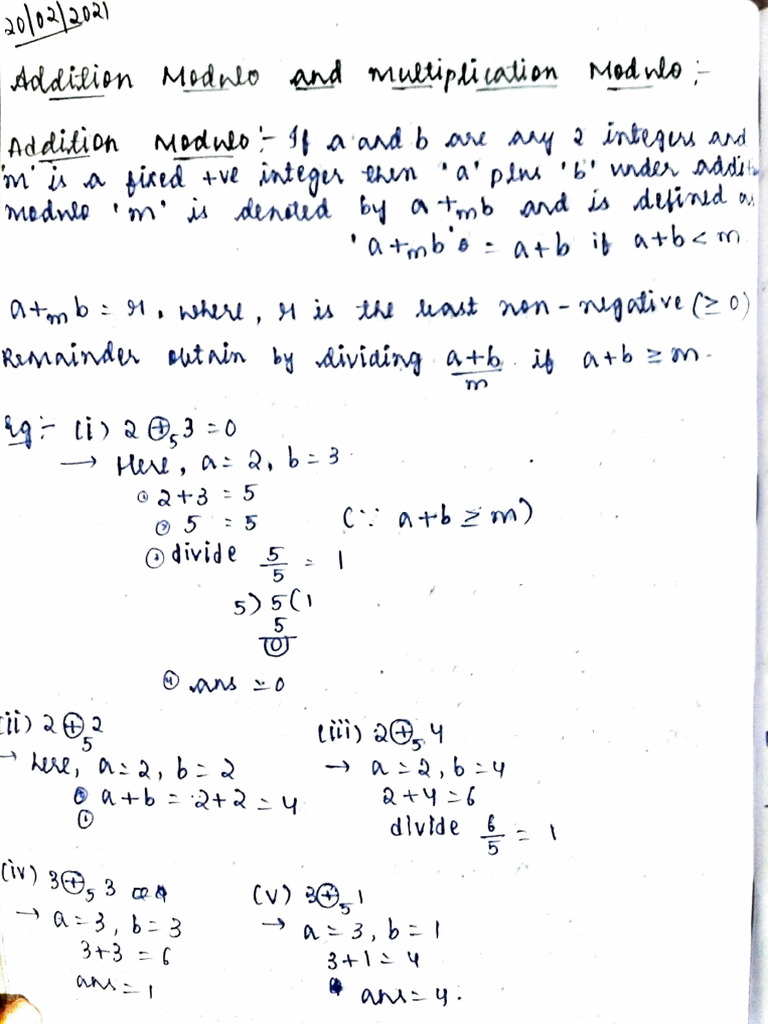 20/02/2021
Addition Modulo and Multiplication Modulo :-
Addition Modulo :- If a and b are any 2 integers and
'm' is a fixed +ve integer then 'a' plus 'b' under addit
modulo 'm' is denoted by a +ₘ b and is defined as
'a +ₘ b' = a+b if a+b < m
a +ₘ b = r, where, r is the least non-negative (≥ 0)
Remainder obtain by dividing (a+b)/m if a+b ≥ m.
Eg :- (i) 2 ⊕₅ 3 = 0
→ Here, a = 2, b = 3
① 2+3 = 5
② 5 = 5 (∵ a+b ≥ m)
③ divide 5/5 = 1
5) 5 (1
5
0
④ ans = 0
(ii) 2 ⊕₅ 2
→ here, a = 2, b = 2
a+b = 2+2 = 4
①
(iii) 2 ⊕₅ 4
→ a = 2, b = 4
2+4 = 6
divide 6/5 = 1
(iv) 3 ⊕₅ 3
→ a = 3, b = 3
3+3 = 6
ans = 1
(v) 3 ⊕₅ 1
→ a = 3, b = 1
3+1 = 4
ans = 4.